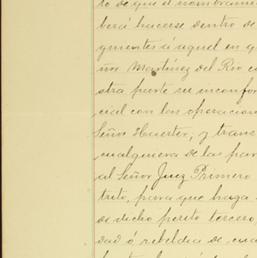 to de que el nombrami
berá hacerse dentro de
guientes á aquel en q
ñor Martínez del Rio c
otra parte ser inconfor
cial con las operacion
Señor Huerter, y trans
cualquiera de las par
al Señor Juez Primero
trito, para que haga
de dicho perito tercero,
dad ó rebeldia de cua